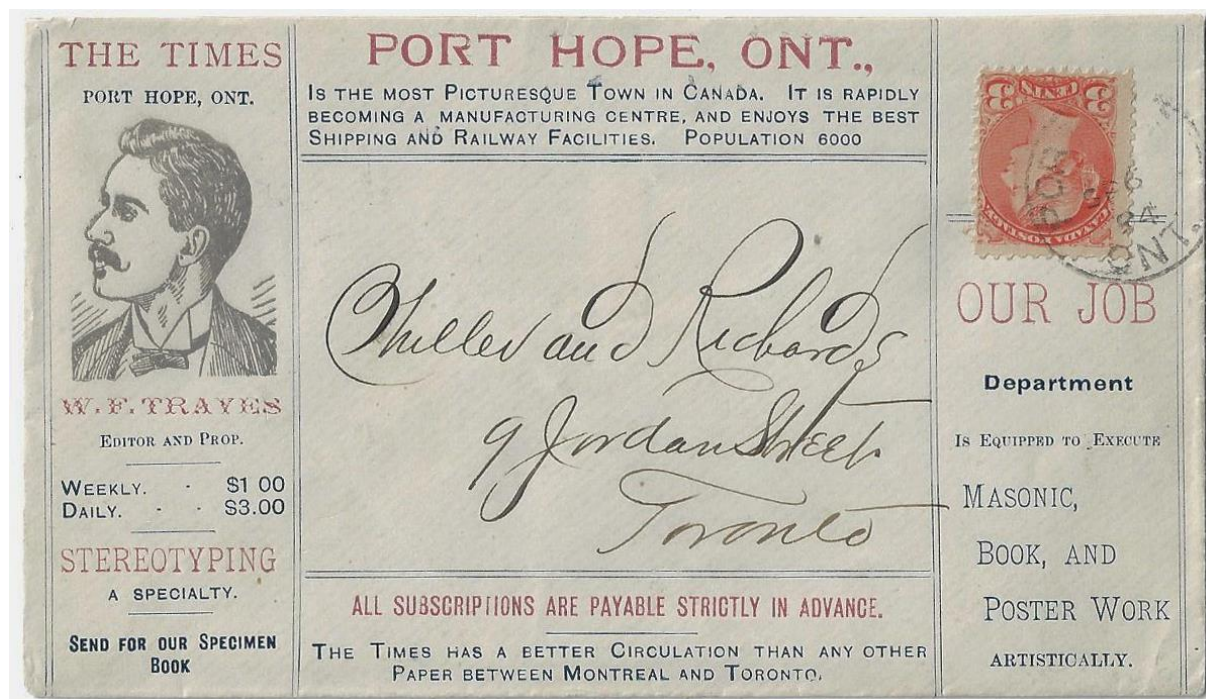 THE TIMES
PORT HOPE, ONT.
W. F. TRAYES
EDITOR AND PROP.
WEEKLY. - $1 00
DAILY. - - $3.00
STEREOTYPING
A SPECIALTY.
SEND FOR OUR SPECIMEN
BOOK
PORT HOPE, ONT.,
IS THE MOST PICTURESQUE TOWN IN CANADA. IT IS RAPIDLY
BECOMING A MANUFACTURING CENTRE, AND ENJOYS THE BEST
SHIPPING AND RAILWAY FACILITIES. POPULATION 6000
Miller and Richards
9 Jordan Street
Toronto
ALL SUBSCRIPTIONS ARE PAYABLE STRICTLY IN ADVANCE.
THE TIMES HAS A BETTER CIRCULATION THAN ANY OTHER
PAPER BETWEEN MONTREAL AND TORONTO.
3 CENTS 3
CANADA POSTAGE
ONT.
OUR JOB
Department
IS EQUIPPED TO EXECUTE
MASONIC,
BOOK, AND
POSTER WORK
ARTISTICALLY.